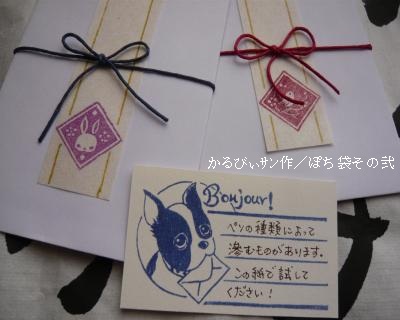 かるびぃサン作／ぽち袋その弐
Bonjour!
ペンの種類によって
滲むものがあります。
この紙で試して
ください！